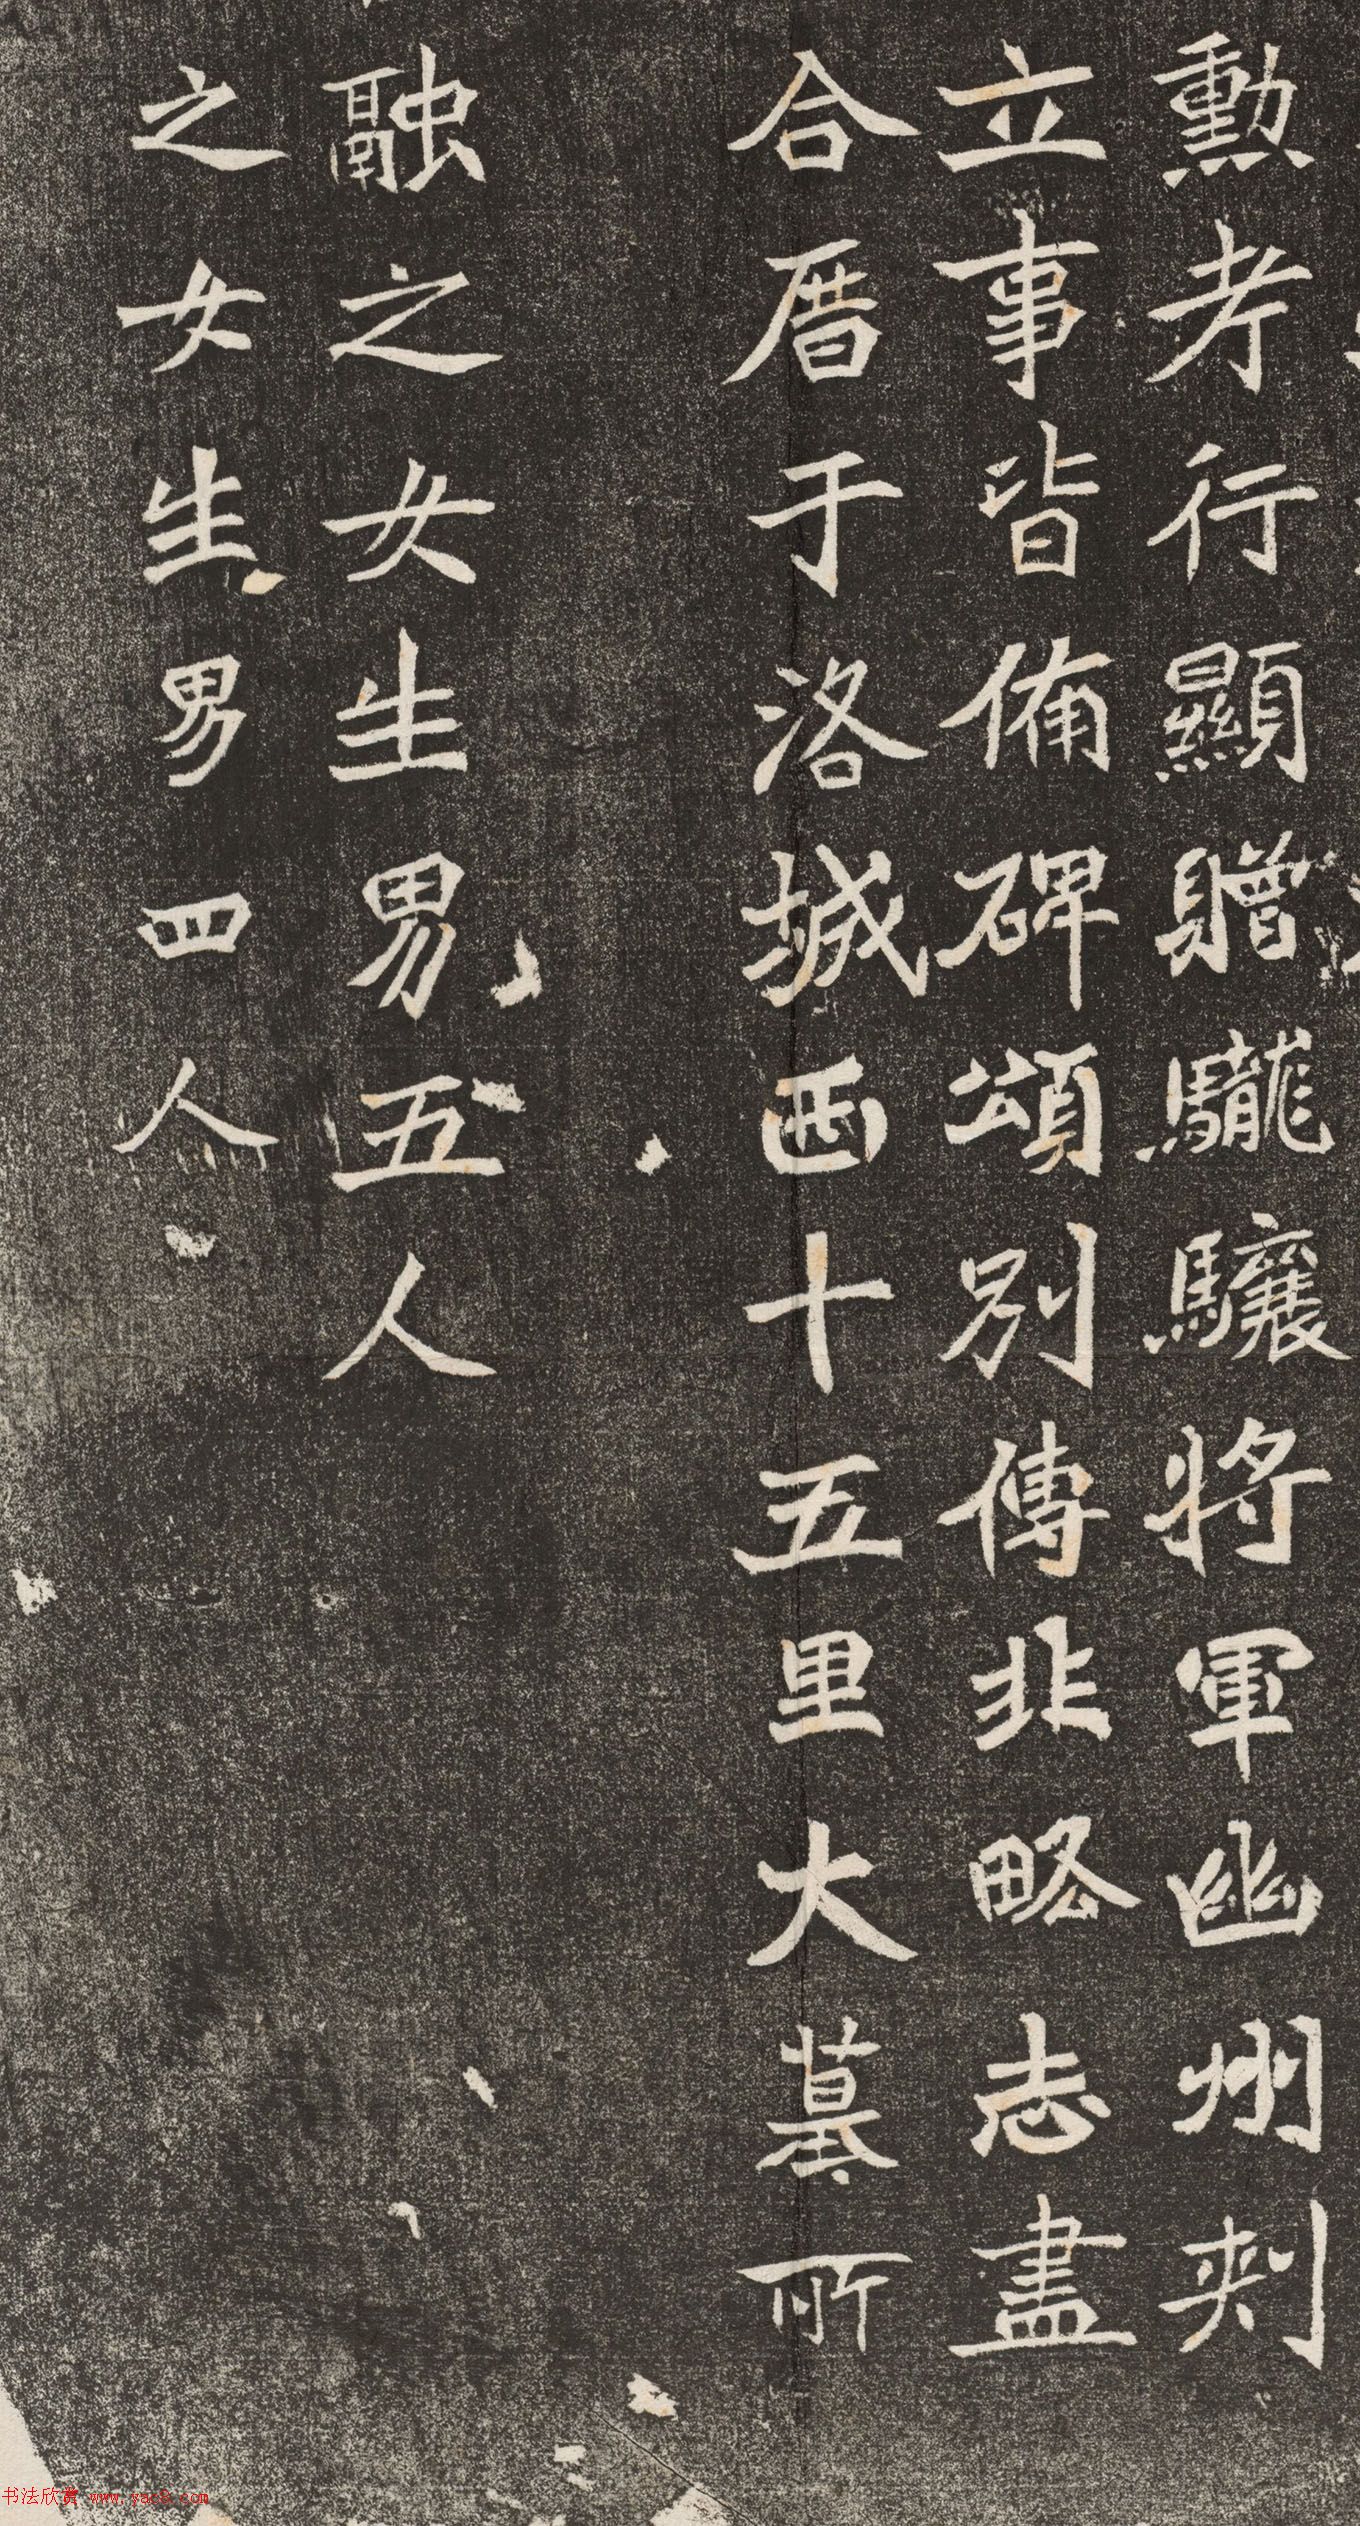 勲考行顯贈驣驤將軍幽州刺
立事皆備碑頌別傳非略志盡
合厝于洛城西十五里大墓所
融之女生男五人
之女生男四人
书法欣赏 www.yac8.com